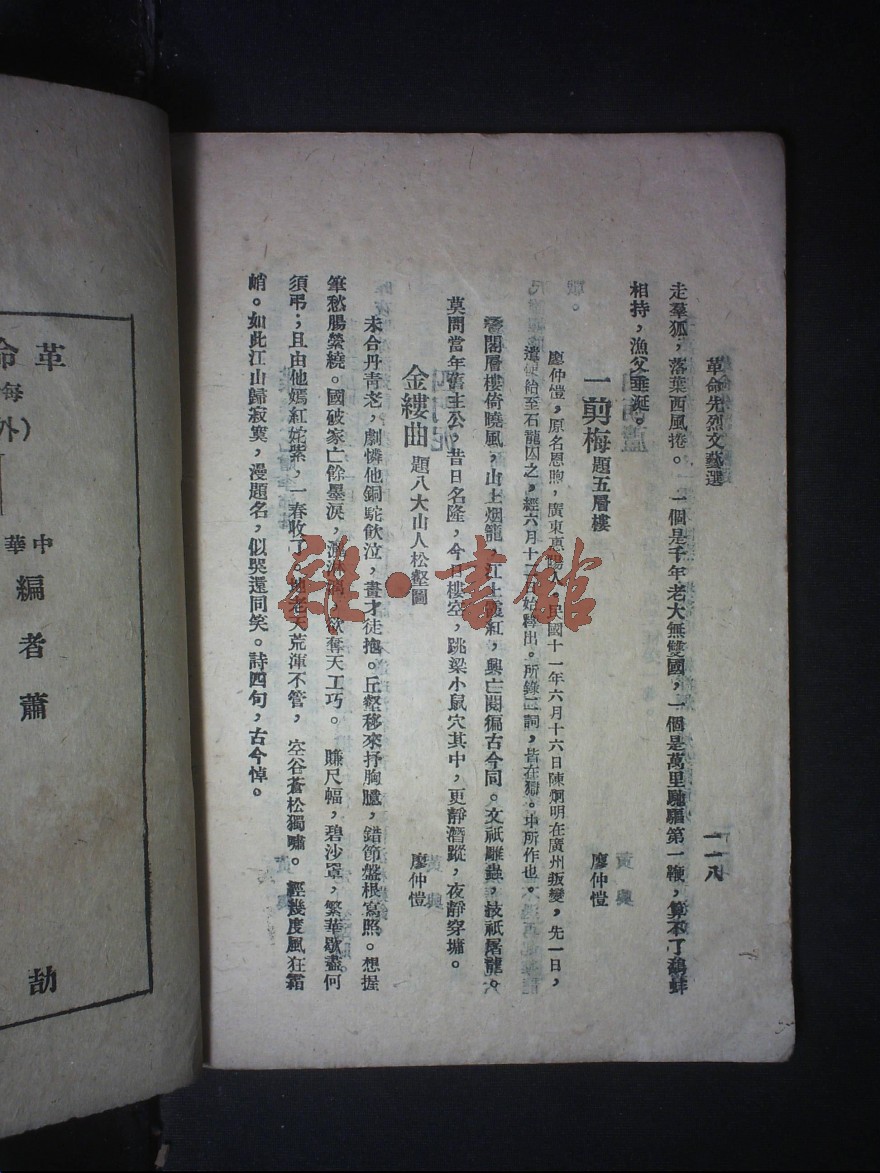 革命先烈文藝選
一一八
走羣狐；落葉西風捲。一個是千年老大無雙國，一個是萬里驌驦第一鞭，算不了鷸蚌
相持，漁父垂涎。
一剪梅 題五層樓 廖仲愷
廖仲愷，原名恩煦，廣東惠陽人。民國十一年六月十六日陳炯明在廣州叛變，先一日，
遣使給至石龍囚之，經六月十二日始釋出。所錄三詞，皆在獄。中所作也。
閣層樓倚曉風，山上烟籠，江上霞紅，興亡閱徧古今同。文祇雕蟲，技祇屠龍。
莫問當年舊主公，昔日名隆，今日樓空，跳梁小鼠穴其中，更靜潛蹤，夜靜穿墉。
金縷曲 題八大山人松壑圖 廖仲愷
未合丹青老，劇憐他銅駝飲泣，畫才徒抱。丘壑移來抒胸臆，錯節盤根寫照。想握
筆愁腸縈繞。國破家亡餘墨淚，欲奪天工巧。賺尺幅，碧沙罩，繁華歇盡何
須弔；且由他嫣紅姹紫，一春收了。老天荒渾不管，空谷蒼松獨嘯。經幾度風狂霜
峭。如此江山歸寂寞，漫題名，似哭還同笑。詩四句，古今悼。
雜·書館
革命
每
（外
中華
編者蕭
劼